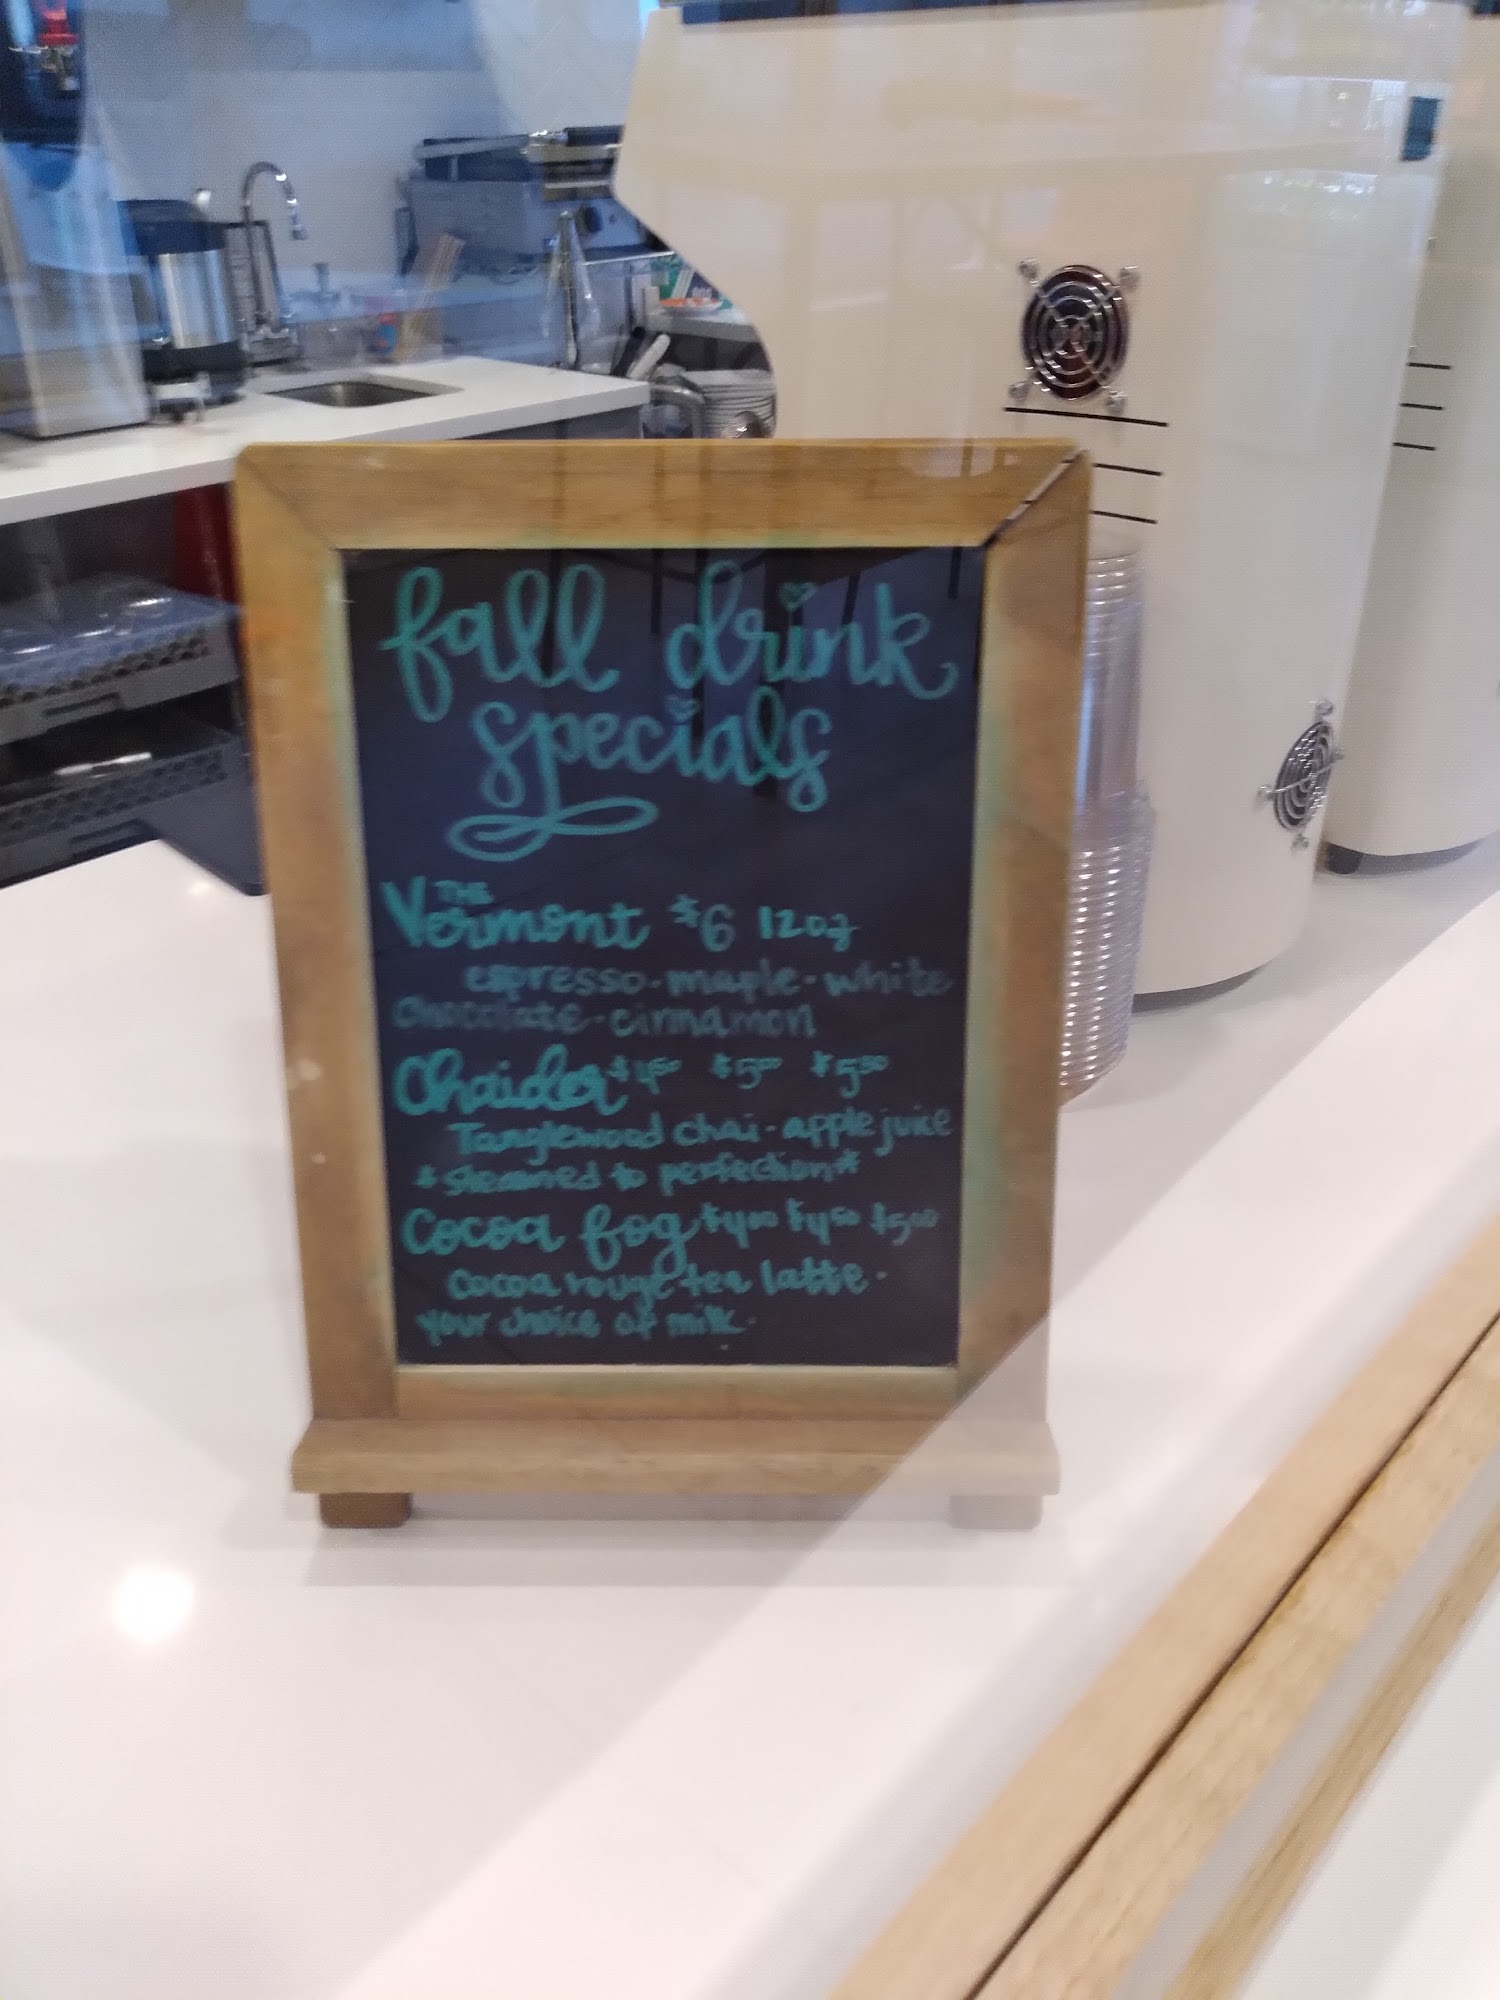 fall drink
specials
THE
Vermont $6 12oz
espresso · maple · white
chocolate · cinnamon
Chaider $4.50 $5.00 $5.50
Tanglewood chai · apple juice
*steamed to perfection*
Cocoa fog $4.00 $4.50 $5.00
cocoa rouge tea latte ·
your choice of milk ·